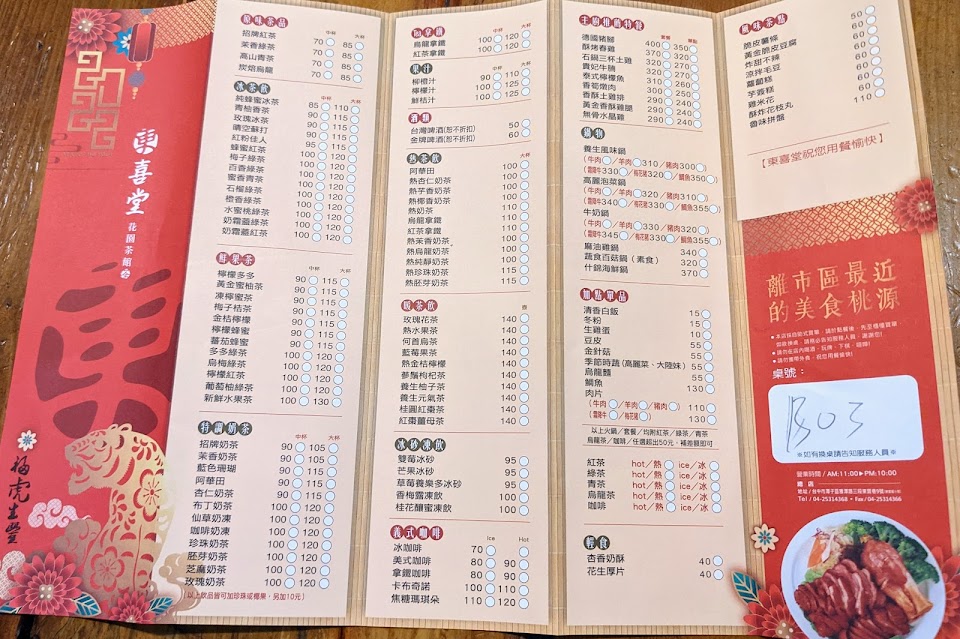 東喜堂
花園茶館
福虎生豐
原味茶品
中杯 大杯
招牌紅茶 70 85
茉香綠茶 70 85
高山青茶 70 85
炭焙烏龍 70 85
冰茶飲
中杯 大杯
純蜂蜜冰茶 85 110
青柚香茶 90 115
玫瑰冰茶 90 115
晴空蘇打 90 115
紅粉佳人 90 115
蜂蜜紅茶 90 115
梅子綠茶 100 120
百香綠茶 100 120
蜜香青茶 100 120
石榴綠茶 100 120
橙香綠茶 100 120
水蜜桃綠茶 100 120
奶霜蓋綠茶 100 120
奶霜蓋紅茶 100 120
鮮果茶
中杯 大杯
檸檬多多 90 115
黃金蜜柚茶 90 115
凍檸蜜茶 90 115
梅子桔茶 90 115
金桔檸檬 90 115
檸檬蜂蜜 90 115
蕃茄蜂蜜 90 115
多多綠茶 100 120
烏梅綠茶 100 120
檸檬紅茶 100 120
葡萄柚綠茶 100 120
新鮮水果茶 100 130
特調奶茶
中杯 大杯
招牌奶茶 90 105
茉香奶茶 90 105
藍色珊瑚 90 115
阿華田 90 115
杏仁奶茶 90 115
布丁奶茶 100 115
仙草奶凍 100 115
咖啡奶凍 100 115
珍珠奶茶 100 115
胚芽奶茶 100 115
芝麻奶茶 100 115
玫瑰奶茶 100 115
(以上飲品皆可加珍珠或椰果，另加10元)
拿鐵
中杯 大杯
烏龍拿鐵 100 120
紅茶拿鐵 100 120
果汁
中杯 大杯
柳橙汁 90 110
檸檬汁 100 125
鮮桔汁 100 125
酒類
台灣啤酒(恕不折扣) 50
金牌啤酒(恕不折扣) 60
熱茶飲
阿華田 100
熱杏仁奶茶 100
熱芋香奶茶 100
熱椰香奶茶 100
熱奶茶 110
烏龍拿鐵 110
紅茶拿鐵 110
熱茉香奶茶 100
熱烏龍奶茶 100
熱純靜奶茶 100
熱珍珠奶茶 115
熱胚芽奶茶 115
壺茶飲
壺
玫瑰花茶 140
熱水果茶 140
何首烏茶 140
藍莓果茶 140
熱金桔檸檬 140
蔘鬚枸杞茶 140
養生柚子茶 140
養生元氣茶 140
桂圓紅棗茶 140
紅棗薑母茶 140
冰砂凍飲
雙莓冰砂 95
芒果冰砂 95
草莓養樂多冰砂 95
香梅露凍飲 100
桂花釀蜜凍飲 100
義式咖啡
Ice Hot
冰咖啡 70
美式咖啡 80 90
拿鐵咖啡 80 90
卡布奇諾 100 110
焦糖瑪琪朵 110 120
主廚推薦特餐
套餐 單點
德國豬腳 400 350
酥烤春雞 370 320
石鍋三杯土雞 320 270
貴妃牛腩 310 260
泰式檸檬魚 310 260
香筍燉肉 300 250
香酥土雞排 290 240
黃金香酥雞腿 290 240
無骨水晶雞 290 240
鍋物
養生風味鍋
(牛肉/羊肉310/豬肉300)
(霜降牛330/梅花豬320/鯛魚350)
高麗泡菜鍋
(牛肉/羊肉320/豬肉310)
(霜降牛340/梅花豬330/鯛魚355)
牛奶鍋
(牛肉/羊肉330/豬肉320)
(霜降牛345/梅花豬330/鯛魚355)
麻油雞鍋 340
蔬食百菇鍋（素食） 320
什錦海鮮鍋 370
加點單品
清香白飯 15
冬粉 15
生雞蛋 10
豆皮 55
金針菇 55
季節時蔬(高麗菜、大陸妹) 55
烏龍麵 55
鯛魚 130
肉片
(牛肉/羊肉/豬肉) 110
(霜降牛/梅花豬) 130
以上火鍋/套餐/均附紅茶/綠茶/青茶
烏龍茶/咖啡/任選超出50元，補差額即可
紅茶 hot/熱 ice/冰
綠茶 hot/熱 ice/冰
青茶 hot/熱 ice/冰
烏龍茶 hot/熱 ice/冰
咖啡 hot/熱 ice/冰
輕食
杏香奶酥 40
花生厚片 40
風味茶點
脆皮薯條 60
黃金脆皮豆腐 60
炸甜不辣 50
涼拌毛豆 50
蘿蔔糕 50
芋簽糕 60
雞米花 60
酥炸花枝丸 60
魯味拼盤 110
【東喜堂祝您用餐愉快】
離市區最近
的美食桃源
桌號：
B03
※如有換桌請告知服務人員※
營業時間 / AM:11:00▶PM:10:00
Tel / 04-25314368 • Fax / 04-25314368